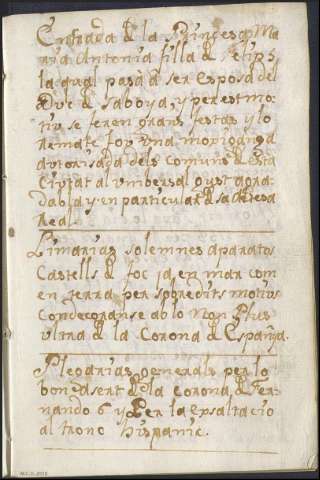 Entrada de la Princesa Ma
ria Antonia filla de Felip 5
la qual pasà a ser Esposa del
Duc de Saboya, y per est mo
tiu se feren grans festas y lo
remate fou una moxiganga
autorisada dels comuns de Esta
Ciutat al universal gust agra
dabla y en particular de sa Alteza
Real.
Limarias solemnes aparatos
Castells de foc ja en mar com
en terra per sobredits motius
Condecoranse ab lo Non Plus
ultra de la Corona de España.
Plegarias generals per lo
bon asert de la corona de Fer
nando 6 y Per la Exsaltacio
al trono Hispanic.